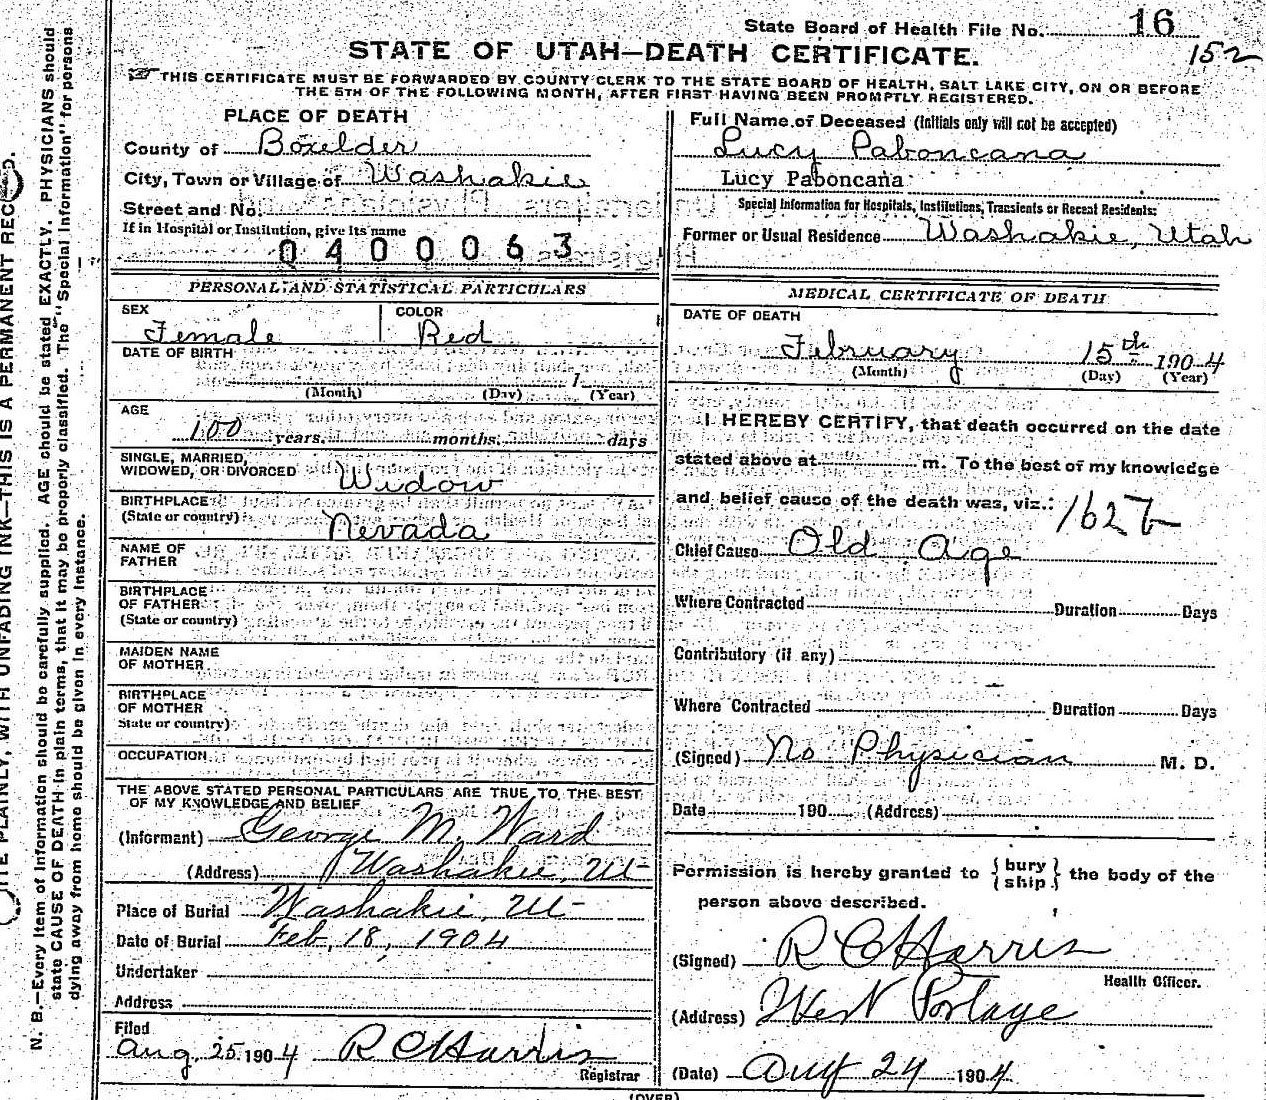 State Board of Health File No. 16
152
STATE OF UTAH—DEATH CERTIFICATE.
THIS CERTIFICATE MUST BE FORWARDED BY COUNTY CLERK TO THE STATE BOARD OF HEALTH, SALT LAKE CITY, ON OR BEFORE
THE 5TH OF THE FOLLOWING MONTH, AFTER FIRST HAVING BEEN PROMPTLY REGISTERED.
PLACE OF DEATH
County of Boxelder
City, Town or Village of Washakie
Street and No.
If in Hospital or Institution, give its name
0400063
Full Name of Deceased (Initials only will not be accepted)
Lucy Paboncana
Lucy Paboncana
Special Information for Hospitals, Institutions, Transients or Recent Residents:
Former or Usual Residence Washakie, Utah
PERSONAL AND STATISTICAL PARTICULARS
SEX
Female
COLOR
Red
DATE OF BIRTH
1
(Month) (Day) (Year)
AGE
100 years, months, days
SINGLE, MARRIED,
WIDOWED, OR DIVORCED Widow
BIRTHPLACE
(State or country)
Nevada
NAME OF
FATHER
BIRTHPLACE
OF FATHER
(State or country)
MAIDEN NAME
OF MOTHER
BIRTHPLACE
OF MOTHER
State or country)
OCCUPATION
THE ABOVE STATED PERSONAL PARTICULARS ARE TRUE TO THE BEST
OF MY KNOWLEDGE AND BELIEF
(Informant) George M. Ward
(Address) Washakie, Ut
Place of Burial Washakie, Ut
Date of Burial Feb, 18, 1904
Undertaker
Address
Filed
Aug. 25 1904 R C Harris
Registrar
MEDICAL CERTIFICATE OF DEATH
DATE OF DEATH
February 15th 1904
(Month) (Day) (Year)
I HEREBY CERTIFY, that death occurred on the date
stated above at m. To the best of my knowledge
and belief cause of the death was, viz.:
Chief Cause Old Age
Where Contracted Duration Days
Contributory (if any)
Where Contracted Duration Days
(Signed) No Physician M. D.
Date 190 (Address)
Permission is hereby granted to {bury
ship} the body of the
person above described.
(Signed) R C Harris
Health Officer.
(Address) West Portage
(Date) Aug 24 1904
(OVER)
N. B.—Every item of information should be carefully supplied. AGE should be stated EXACTLY. PHYSICIANS should
state CAUSE OF DEATH in plain terms, that it may be properly classified. The "Special Information" for persons
dying away from home should be given in every instance.
PLAINLY, WITH UNFADING INK—THIS IS A PERMANENT